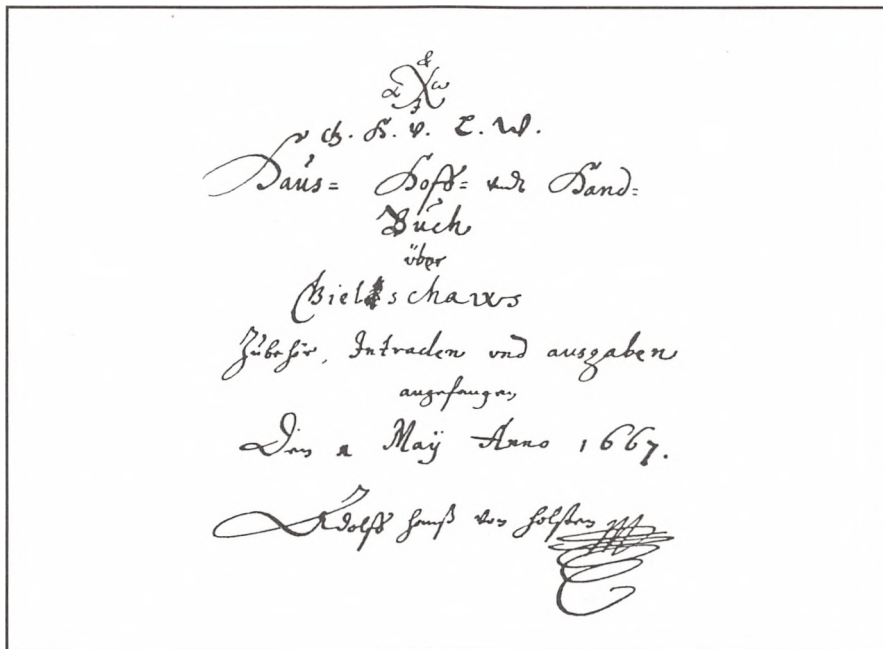 α ω
G. H. v. E. W.
Haus= Hoff= und Hand=
Buch
über
Bielschaws
Zubehör, Intraden und ausgaben
angefangen
Den 1 Maÿ Anno 1667.
Adolff hanß von holsten